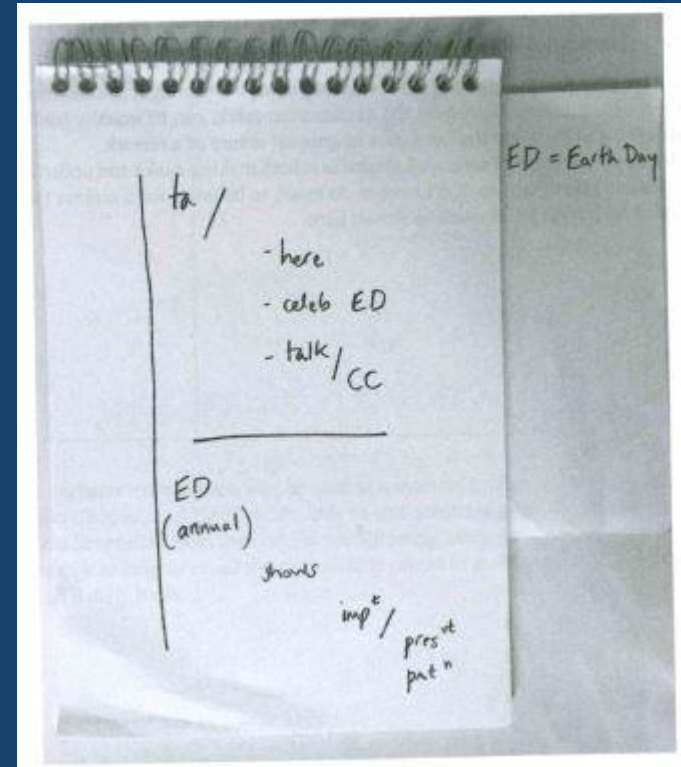 ED = Earth Day
ta /
- here
- celeb ED
- talk /
CC
ED
(annual)
shows
imp^t /
pres^